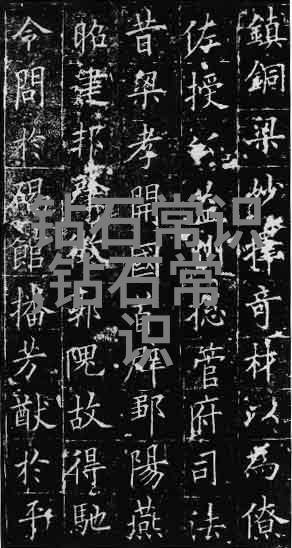 鎮銅梁妙擇奇材以為僚
佐授益州總管府司法
昔梁孝開國首辟鄒陽燕
昭建邦肇郭隗故得馳
令問於碣館播芳猷於平
钻石常识
钻石常
识